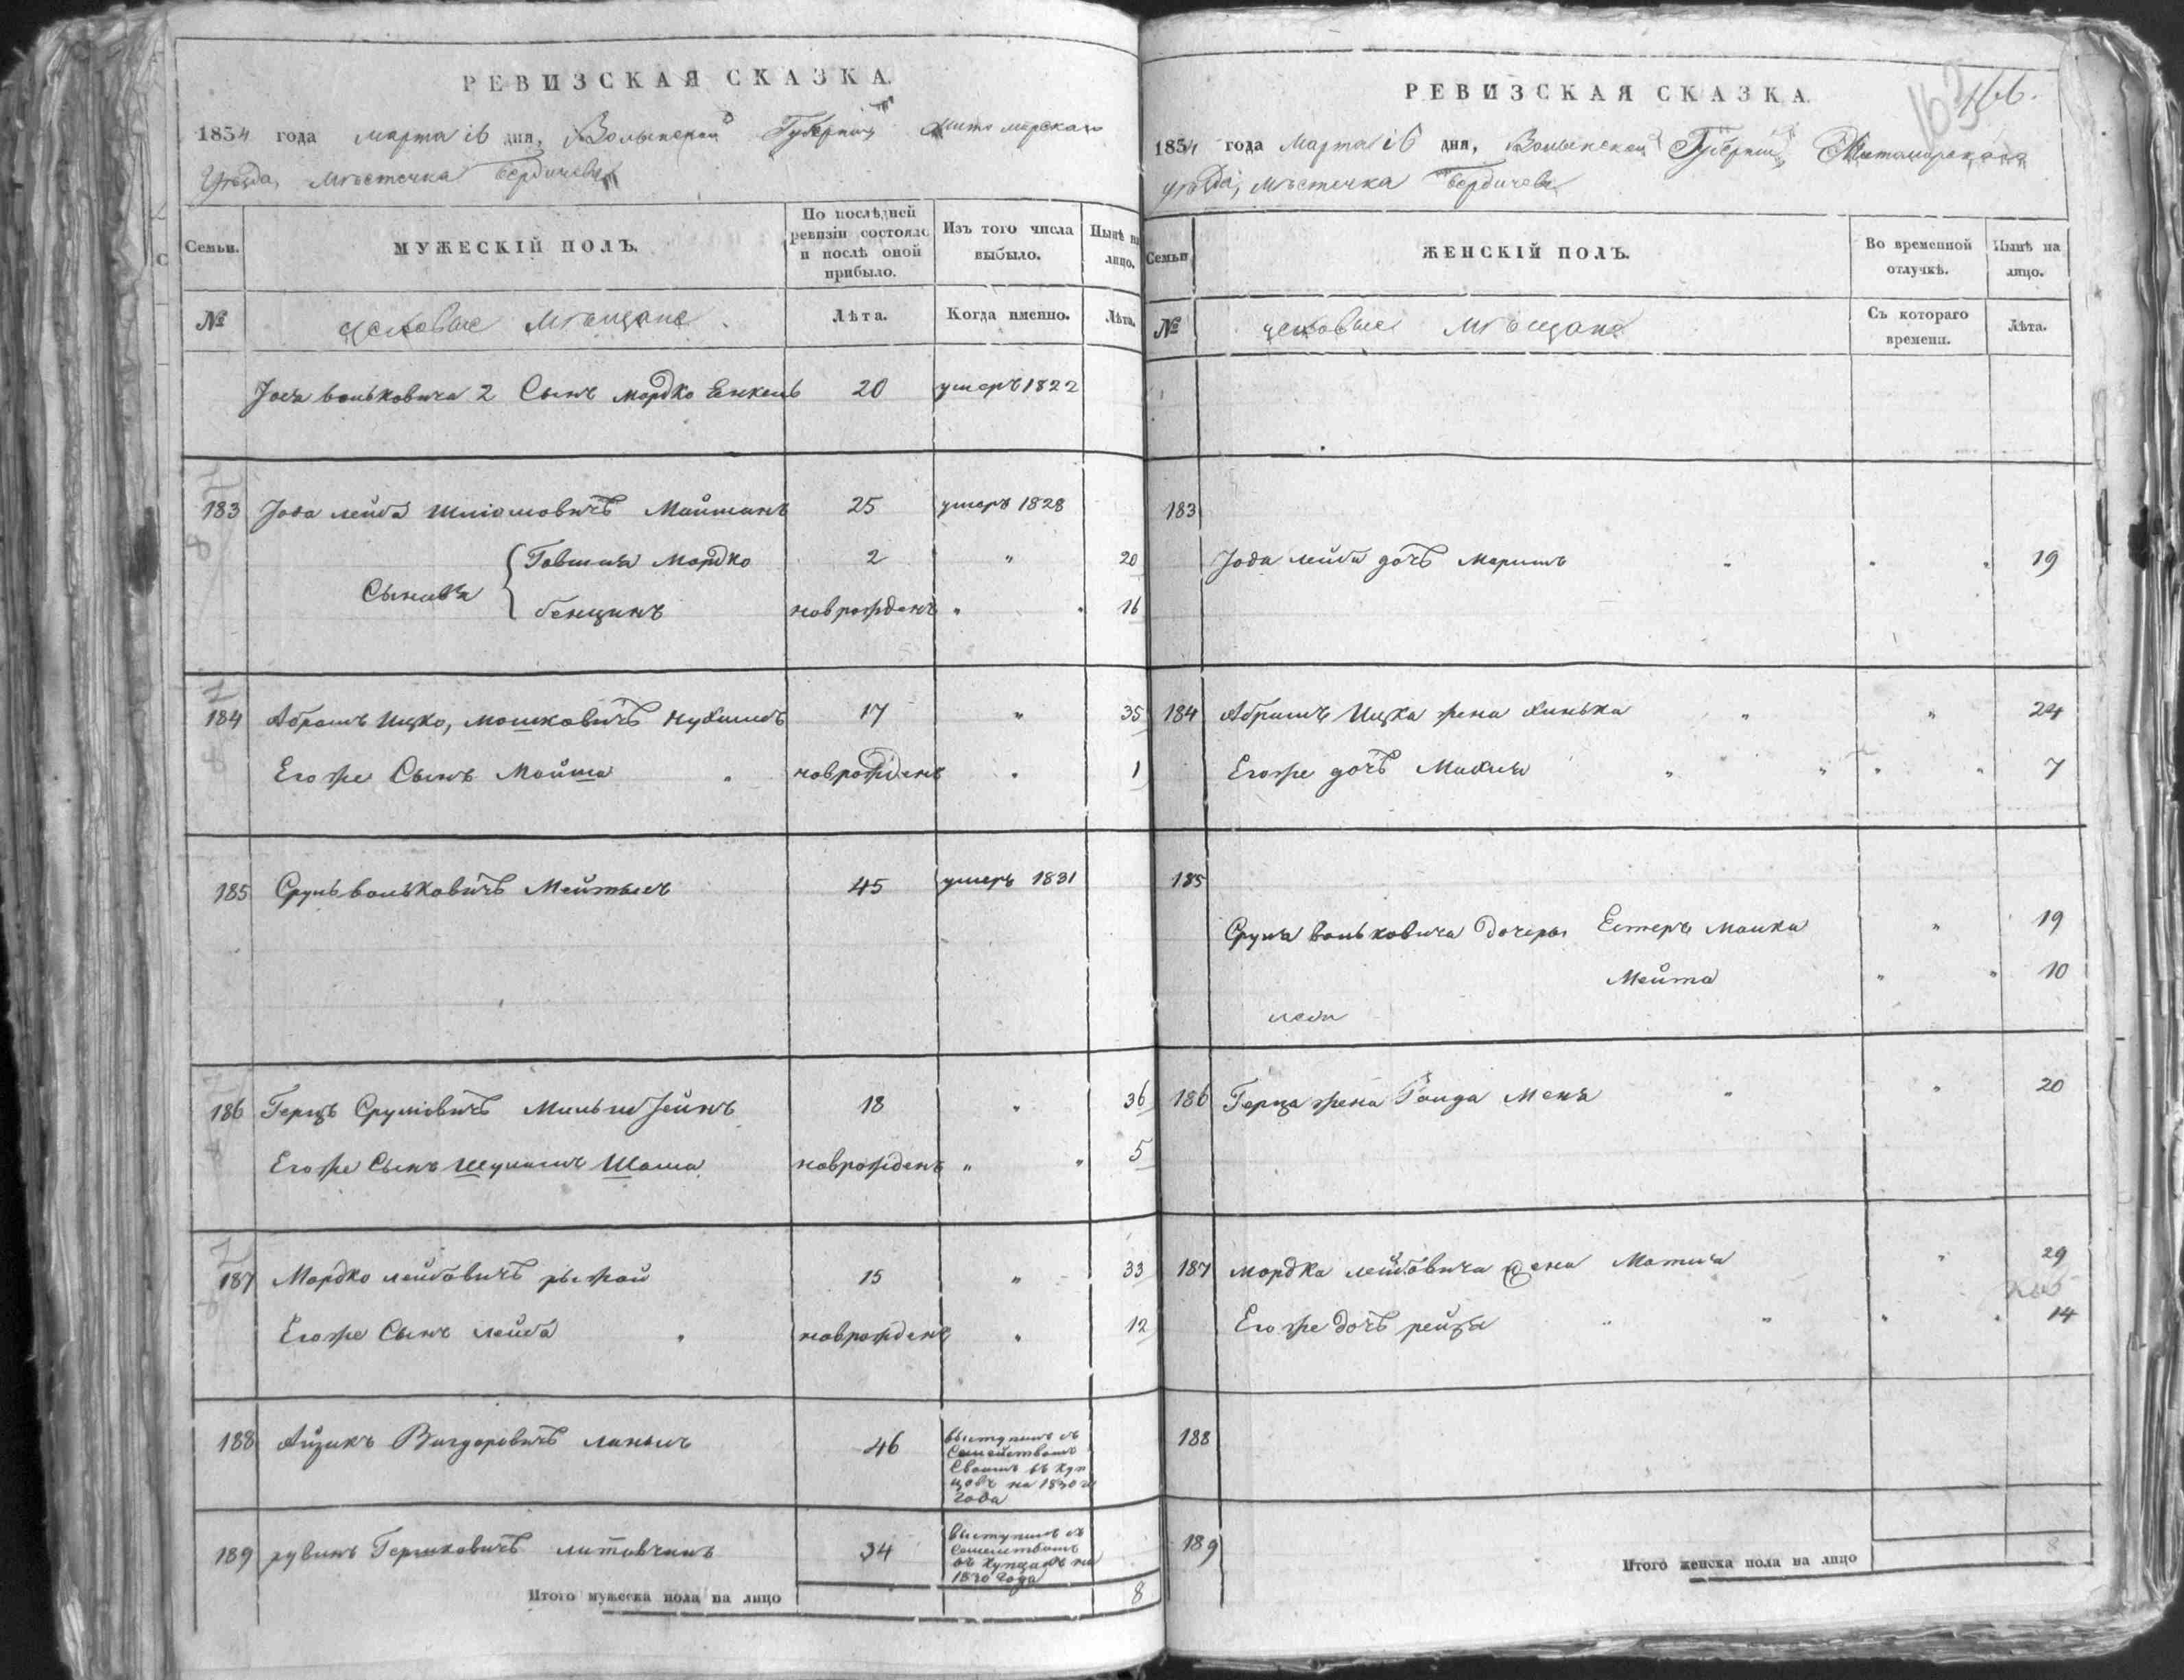 РЕВИЗСКАЯ СКАЗКА.
1834 года марта 16 дня, Волынской Губерніи Житомирскаго
Уѣзда, мѣстечка Бердичева
Семьи.
МУЖЕСКІЙ ПОЛЪ.
По послѣдней ревизіи состояло и послѣ оной прибыло.
Изъ того числа выбыло.
Нынѣ на лицо.
№
цеховые мѣщане
Лѣта.
Когда именно.
Лѣта.
Воньковича 2 Сынъ Мордко Енкель 20 умеръ 1822
183 Лейба Шліомовичъ 25 умеръ 1828
Мордко 2 " 20
Сыновья
Бенціинъ новрожденъ " " 16
184 Абрамъ Ицко, Мошковичъ 17 " 35
Егоже Сынъ Мойша " новрожденъ " 1
185 Сруль Воньковичъ 45 умеръ 1831
186 Герцъ Срулiовичъ 18 " 36
Егоже Сынъ Шулимъ новрожденъ " " 5
187 Мордко Лейбовичъ рыжой 15 " 33
Егоже Сынъ Лейба " новрожденъ " 12
188 Айзикъ Вигдоровичъ 46 выступилъ съ
Семействомъ
Своимъ въ Куп
цовъ на 1830й
года
189 рувинъ Гершковичъ литовчинъ 34 выступилъ съ
Семействомъ
въ Купцовъ на
1830 года
Итого мужеска пола на лицо 8
163 166.
РЕВИЗСКАЯ СКАЗКА.
1834 года Марта 16 дня, Волынской Губерніи Житомирскаго
уѣзда, мѣстечка Бердичева
Семьи
ЖЕНСКІЙ ПОЛЪ.
Во временной отлучкѣ.
Нынѣ на лицо.
№
цеховые мѣщане
Съ котораго времени.
Лѣта.
183
Лейби дочь " " " 19
184 Абрамъ Ицка жена Хинька " " 24
Егоже дочь " " " " 7
185
Сруля Воньковича дочеры Естеръ Малка " 19
Мейта " " 10
186 Герца жена Меня " " 20
187 Мордка Лейбовича жена " 29
Егоже дочь рейза " " " " 14
188
189
Итого женска пола на лицо 8